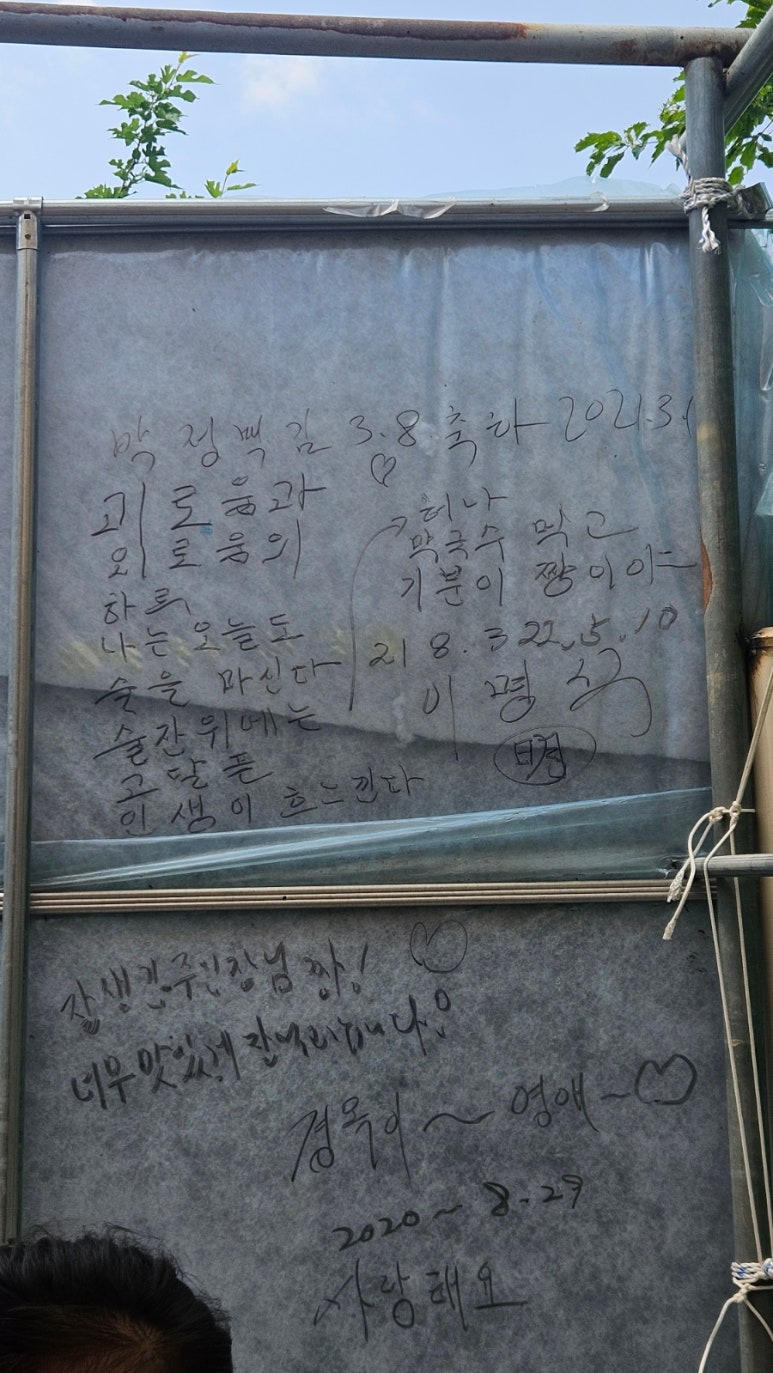 막 정백김 3.8. 축하 2021.3.1
괴로움과
외로움의
하루
나는 오늘도
술을 마신다
술잔위에는
고달픈
인생이 흐느낀다
막국수 먹고
기분이 짱이야
21 8.3 22.5.10
이명
잘생긴주인장님 짱!
너무맛있게
경옥이~ 영애~
2020~ 8.29
사랑해요